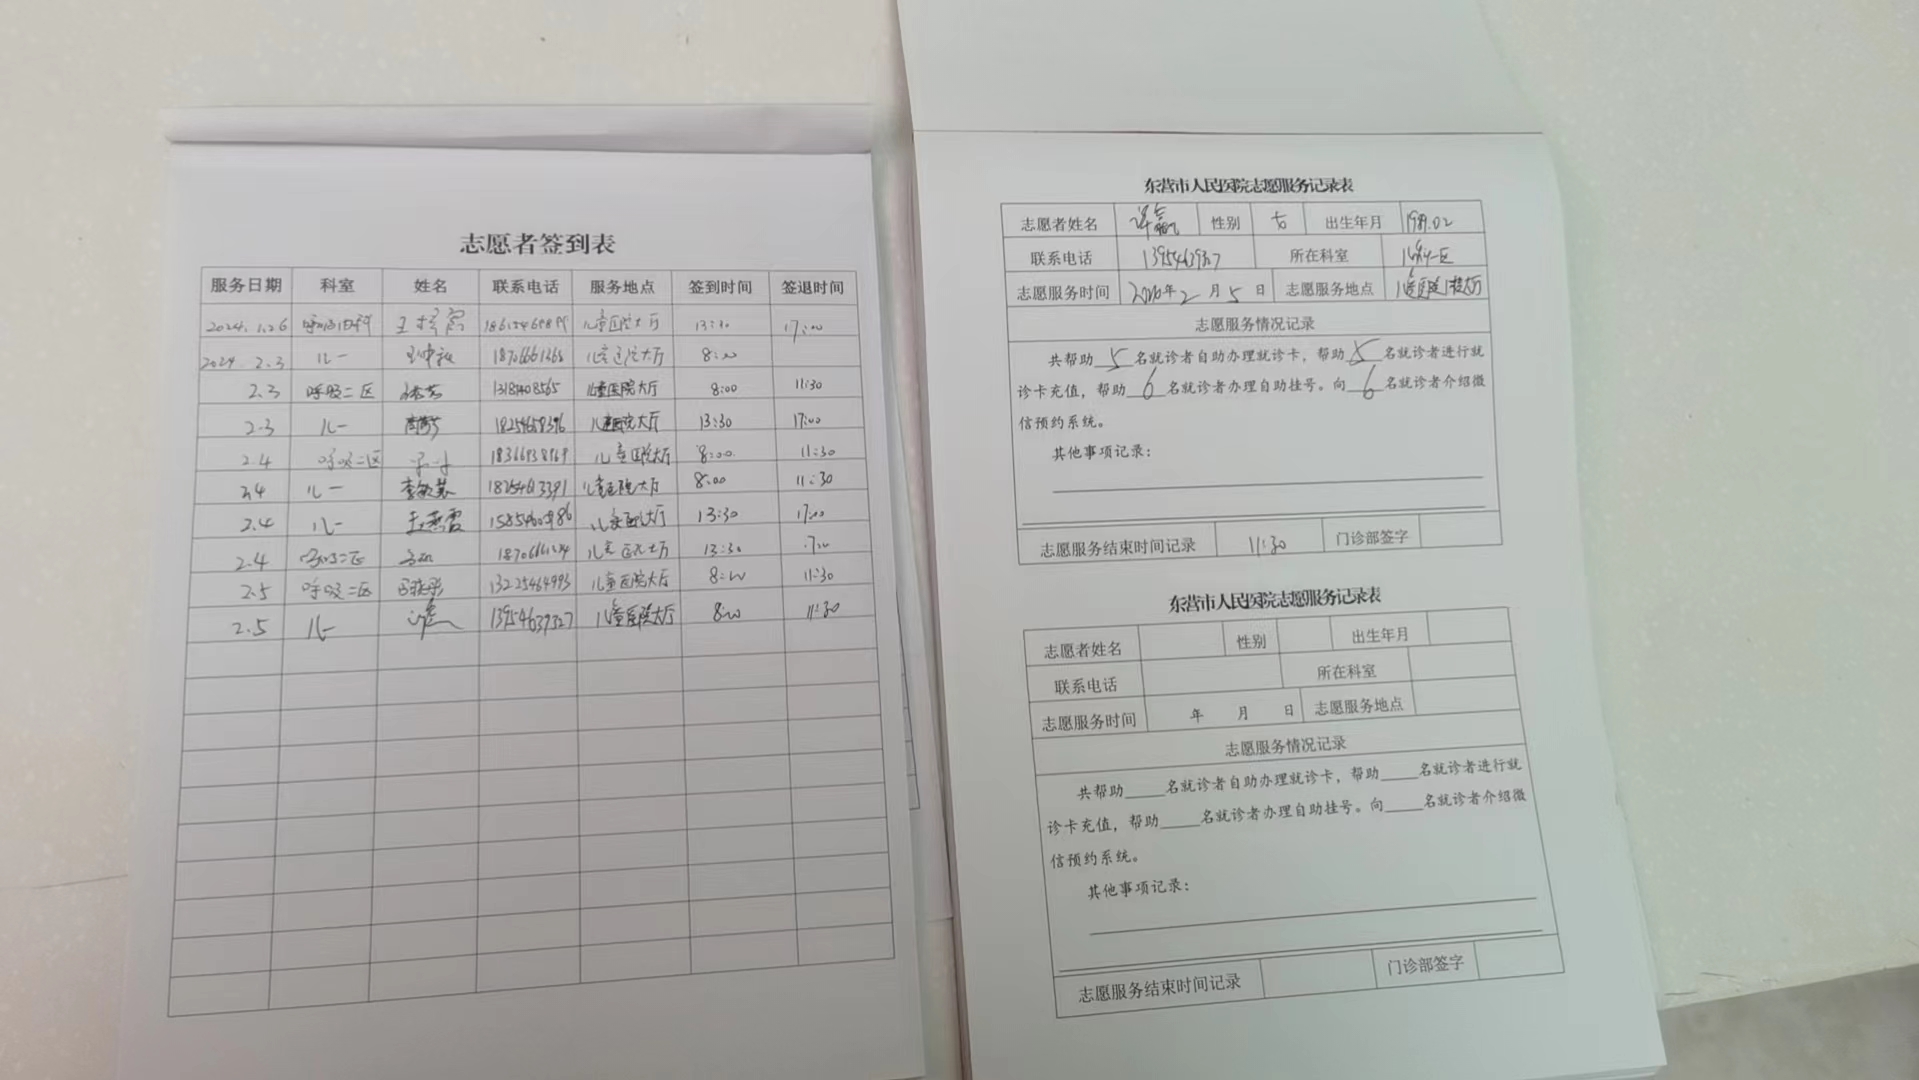 志愿者签到表
服务日期 科室 姓名 联系电话 服务地点 签到时间 签退时间
2024.1.26 呼吸内科 儿童医院大厅 13:30 17:00
2024.2.3 儿一 儿童医院大厅 8:00
2.3 呼吸二区 13181408565 儿童医院大厅 8:00 11:30
2.3 儿一 18254658396 儿童医院大厅 13:30 17:00
2.4 呼吸二区 18366938969 儿童医院大厅 8:00 11:30
2.4 儿一 18254613391 儿童医院大厅 8:00 11:30
2.4 儿一 王燕雷 儿童医院大厅 13:30 17:00
2.4 呼吸二区 儿童医院大厅 13:30
2.5 呼吸二区 13225464993 儿童医院大厅 8:00 11:30
2.5 儿一 13954639327 儿童医院大厅 8:00 11:30
东营市人民医院志愿服务记录表
志愿者姓名 性别 女 出生年月
联系电话 13954639327 所在科室
志愿服务时间 年2月5日 志愿服务地点
志愿服务情况记录
共帮助5名就诊者自助办理就诊卡，帮助5名就诊者进行就
诊卡充值，帮助6名就诊者办理自助挂号。向6名就诊者介绍微
信预约系统。
其他事项记录：
志愿服务结束时间记录 11:30 门诊部签字
东营市人民医院志愿服务记录表
志愿者姓名 性别 出生年月
联系电话 所在科室
志愿服务时间 年 月 日 志愿服务地点
志愿服务情况记录
共帮助____名就诊者自助办理就诊卡，帮助____名就诊者进行就
诊卡充值，帮助____名就诊者办理自助挂号。向____名就诊者介绍微
信预约系统。
其他事项记录：
志愿服务结束时间记录 门诊部签字